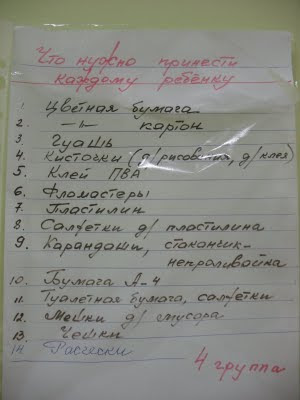 Что нужно принести
каждому ребёнку
1. Цветная бумага
2. –"– картон
3. Гуашь
4. Кисточки (д/рисования, д/клея)
5. Клей ПВА
6. Фломастеры
7. Пластилин
8. Салфетки д/ пластилина
9. Карандаши, стаканчик-
непроливайка
10. Бумага А-4
11. Туалетная бумага, салфетки
12. Мешки д/ мусора
13. Чешки
14. Расчески
4 группа